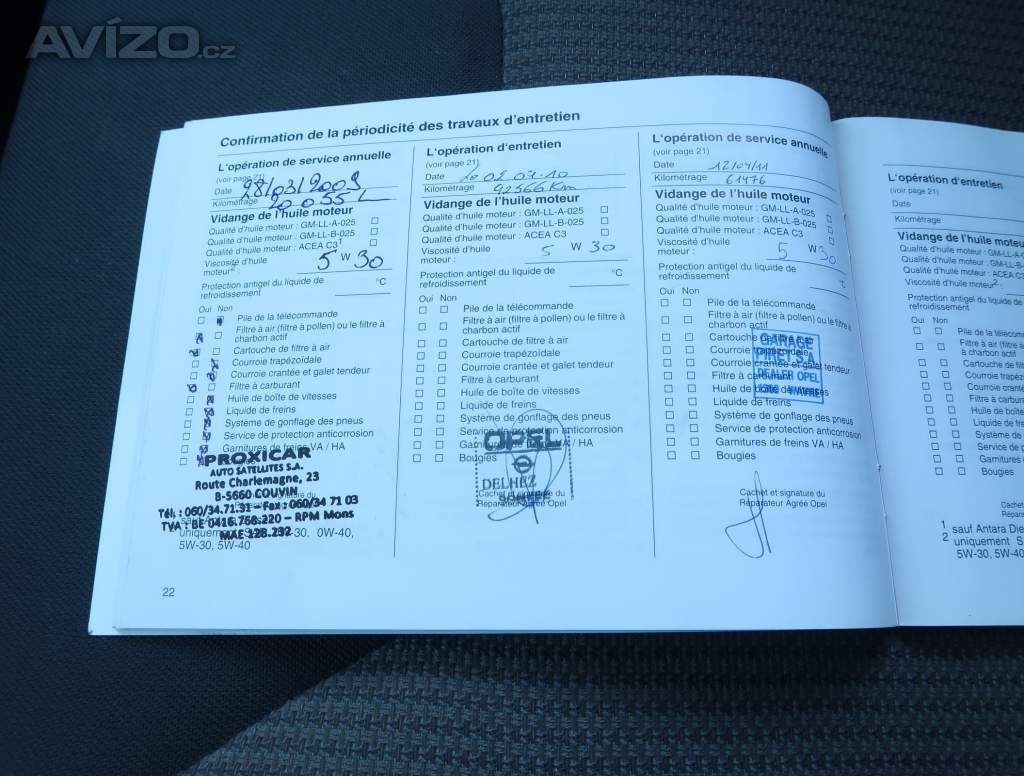 AVÍZO.cz
Confirmation de la périodicité des travaux d'entretien
L'opération de service annuelle
(voir page 21)
Date 28/03/2009
Kilométrage 20 055
Vidange de l'huile moteur
Qualité d'huile moteur : GM-LL-A-025
Qualité d'huile moteur : GM-LL-B-025
Qualité d'huile moteur : ACEA C3¹
Viscosité d'huile
moteur² : 5 W 30
Protection antigel du liquide de
refroidissement °C
Oui Non
Pile de la télécommande
Filtre à air (filtre à pollen) ou le filtre à
charbon actif
Cartouche de filtre à air
Courroie trapézoïdale
Courroie crantée et galet tendeur
Filtre à carburant
Huile de boîte de vitesses
Liquide de freins
Système de gonflage des pneus
Service de protection anticorrosion
Garnitures de freins VA / HA
PROXICAR
AUTO SATELLITES S.A.
Route Charlemagne, 23
B-5660 COUVIN
Tél. : 060/34.71.31 - Fax : 060/34 71 03
TVA : BE 0416.768.220 - RPM Mons
MAE 128.232
uniquement 0W-30, 0W-40,
5W-30, 5W-40
22
L'opération d'entretien
(voir page 21)
Date 02.04.10
Kilométrage 42566 Km
Vidange de l'huile moteur
Qualité d'huile moteur : GM-LL-A-025
Qualité d'huile moteur : GM-LL-B-025
Qualité d'huile moteur : ACEA C3
Viscosité d'huile
moteur : 5 W 30
Protection antigel du liquide de
refroidissement °C
Oui Non
Pile de la télécommande
Filtre à air (filtre à pollen) ou le filtre à
charbon actif
Cartouche de filtre à air
Courroie trapézoïdale
Courroie crantée et galet tendeur
Filtre à carburant
Huile de boîte de vitesses
Liquide de freins
Système de gonflage des pneus
Service de protection anticorrosion
Garnitures de freins VA / HA
Bougies
OPEL
DELHEZ
Cachet et signature du
Réparateur Agréé Opel
L'opération de service annuelle
(voir page 21)
Date 12/04/11
Kilométrage 61476
Vidange de l'huile moteur
Qualité d'huile moteur : GM-LL-A-025
Qualité d'huile moteur : GM-LL-B-025
Qualité d'huile moteur : ACEA C3
Viscosité d'huile
moteur : 5 W 30
Protection antigel du liquide de
refroidissement °C
Oui Non
Pile de la télécommande
Filtre à air (filtre à pollen) ou le filtre à
charbon actif
Cartouche de filtre à air
Courroie trapézoïdale
Courroie crantée et galet tendeur
Filtre à carburant
Huile de boîte de vitesses
Liquide de freins
Système de gonflage des pneus
Service de protection anticorrosion
Garnitures de freins VA / HA
Bougies
GARAGE
DEALER OPEL
WAVRE
Cachet et signature du
Réparateur Agréé Opel
L'opération d'entretien
(voir page 21)
Date
Kilométrage
Vidange de l'huile moteu
Qualité d'huile moteur : GM-LL-A
Qualité d'huile moteur : GM-LL-B
Qualité d'huile moteur : ACEA C3
Viscosité d'huile moteur² :
Protection antigel du liquide de
refroidissement
Oui Non
Pile de la télécomm
Filtre à air (filtre à
à charbon actif
Cartouche de filt
Courroie trapéz
Courroie cranté
Filtre à carbura
Huile de boîte
Liquide de fre
Système de
Service de p
Garnitures
Bougies
Cachet
Répara
1 sauf Antara Die
2 uniquement S
5W-30, 5W-40